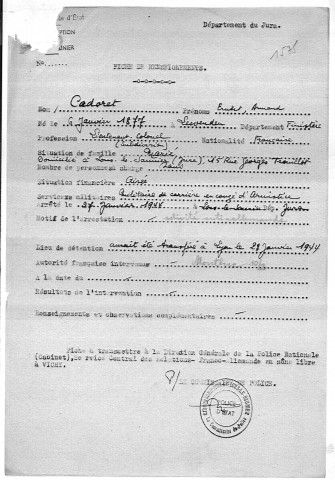 Département du Jura.
1575
FICHE DE RENSEIGNEMENTS.
Nom / Cadoret Prénoms Ernest, Armand
Né le 6 Janvier 1877 à Département Finistère
Profession Lieutenant Colonel Nationalité Française
Situation de famille Marié
Domicilié à Lons le Saunier (Jura), 15 Rue Georges Trouillot
Nombre de personnes à charge
Situation financière Aisé
Services militaires Militaire de carrière en congé d'Armistice
Arrêté le 27 Janvier 1944 à Lons-le-Saunier Dép. Jura
Motif de l'arrestation
Lieu de détention aurait été transféré à Lyon le 29 Janvier 1944
Autorité française intervenue
A la date du
Résultats de l'intervention
Renseignements et observations complémentaires
Fiche à transmettre à la Direction Générale de la Police Nationale
(Cabinet), Service Central des Relations Franco-Allemande en zône libre
à VICHY.
P/ LE COMMISSAIRE DE POLICE.
POLICE